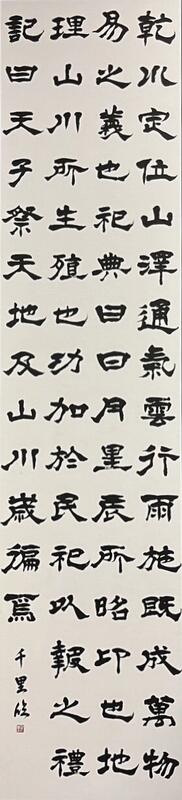 乾川定位山澤通氣雲行雨施既成萬物
易之義也祀典曰日月星辰所昭卬也地
理山川所生殖也功加於民祀以報之禮
記曰天子祭天地及山川歲徧焉
千里臨